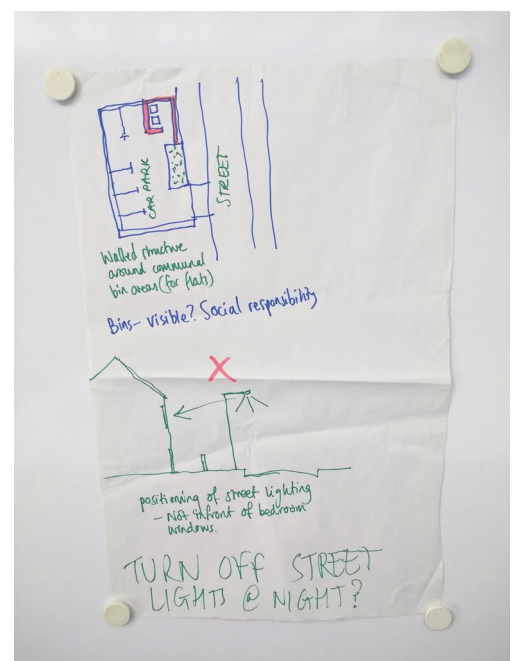 CAR PARK
STREET
Walled structure
around communal
bin areas (for flats)
Bins- visible? Social responsibility
positioning of street lighting
- Not infront of bedroom
windows.
TURN OFF STREET
LIGHTS @ NIGHT?